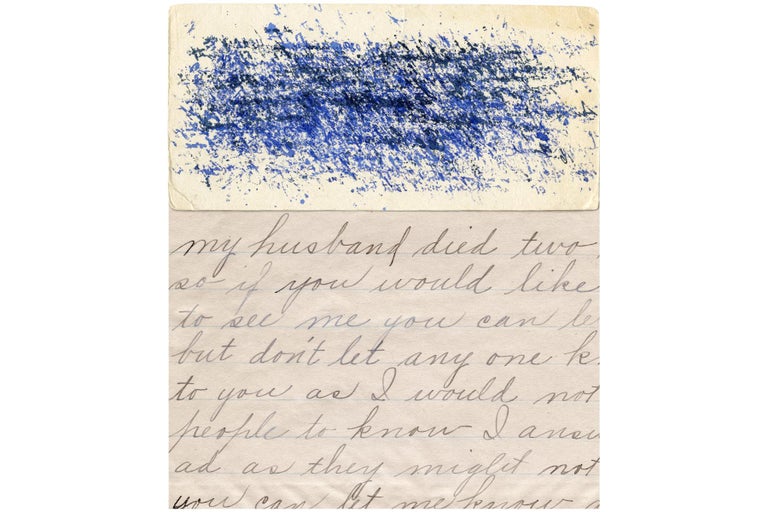 my husband died two
so if you would like
to see me you can le
but don't let any one k
to you as I would not
people to know I answ
ad as they might not
you can let me know a